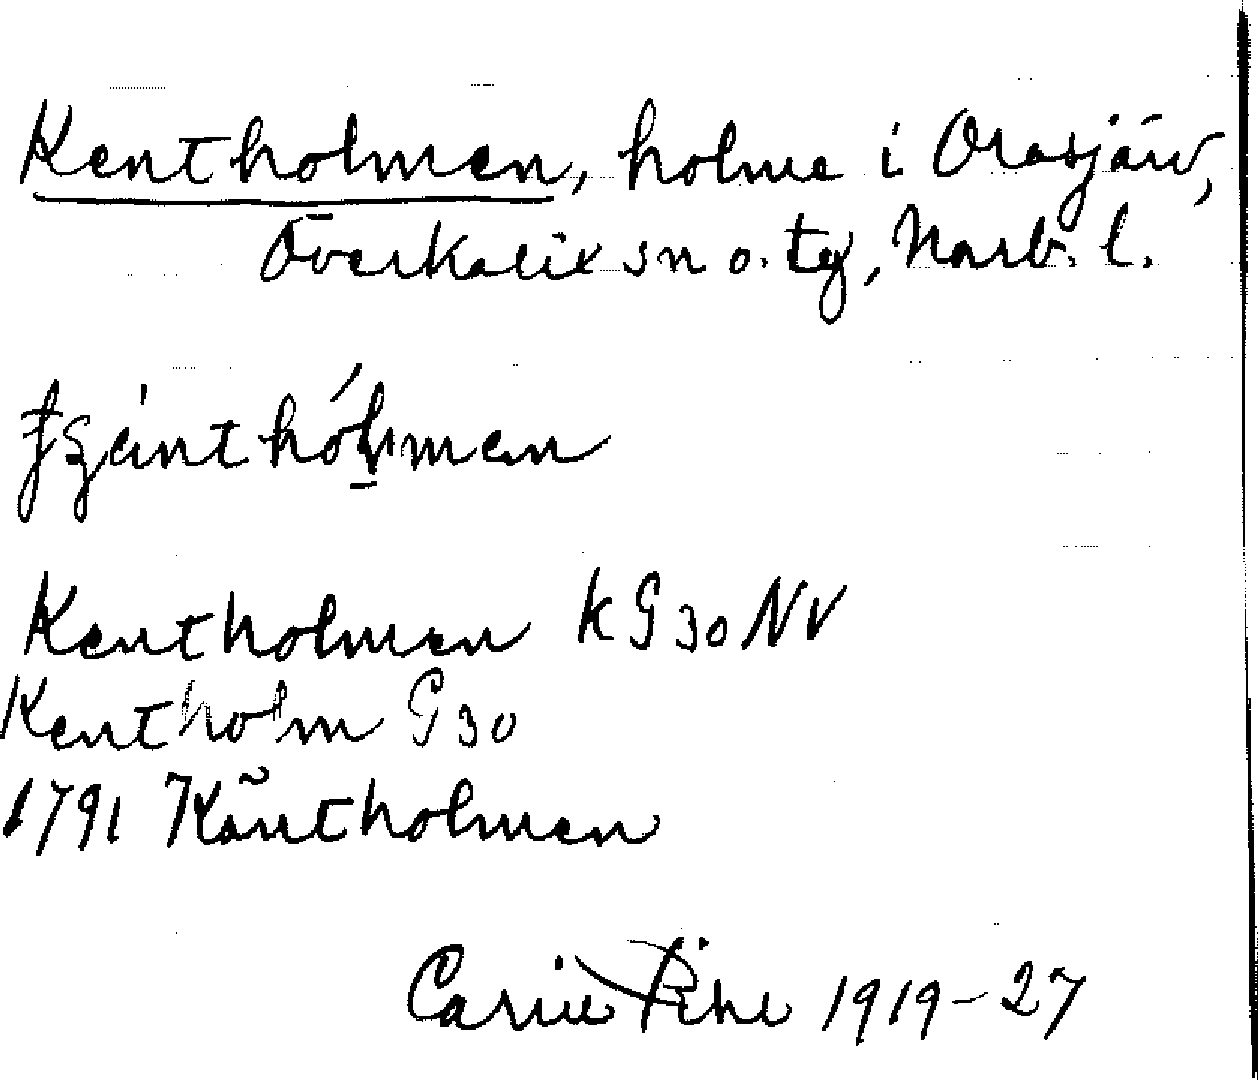 Kentholmen, holme i Orasjärv,
Överkalix sn o. tg, Norrb. l.
Kentholmen k G 30 NV
Kentholm G 30
1791 Käntholmen
Carin Pihl 1919-27